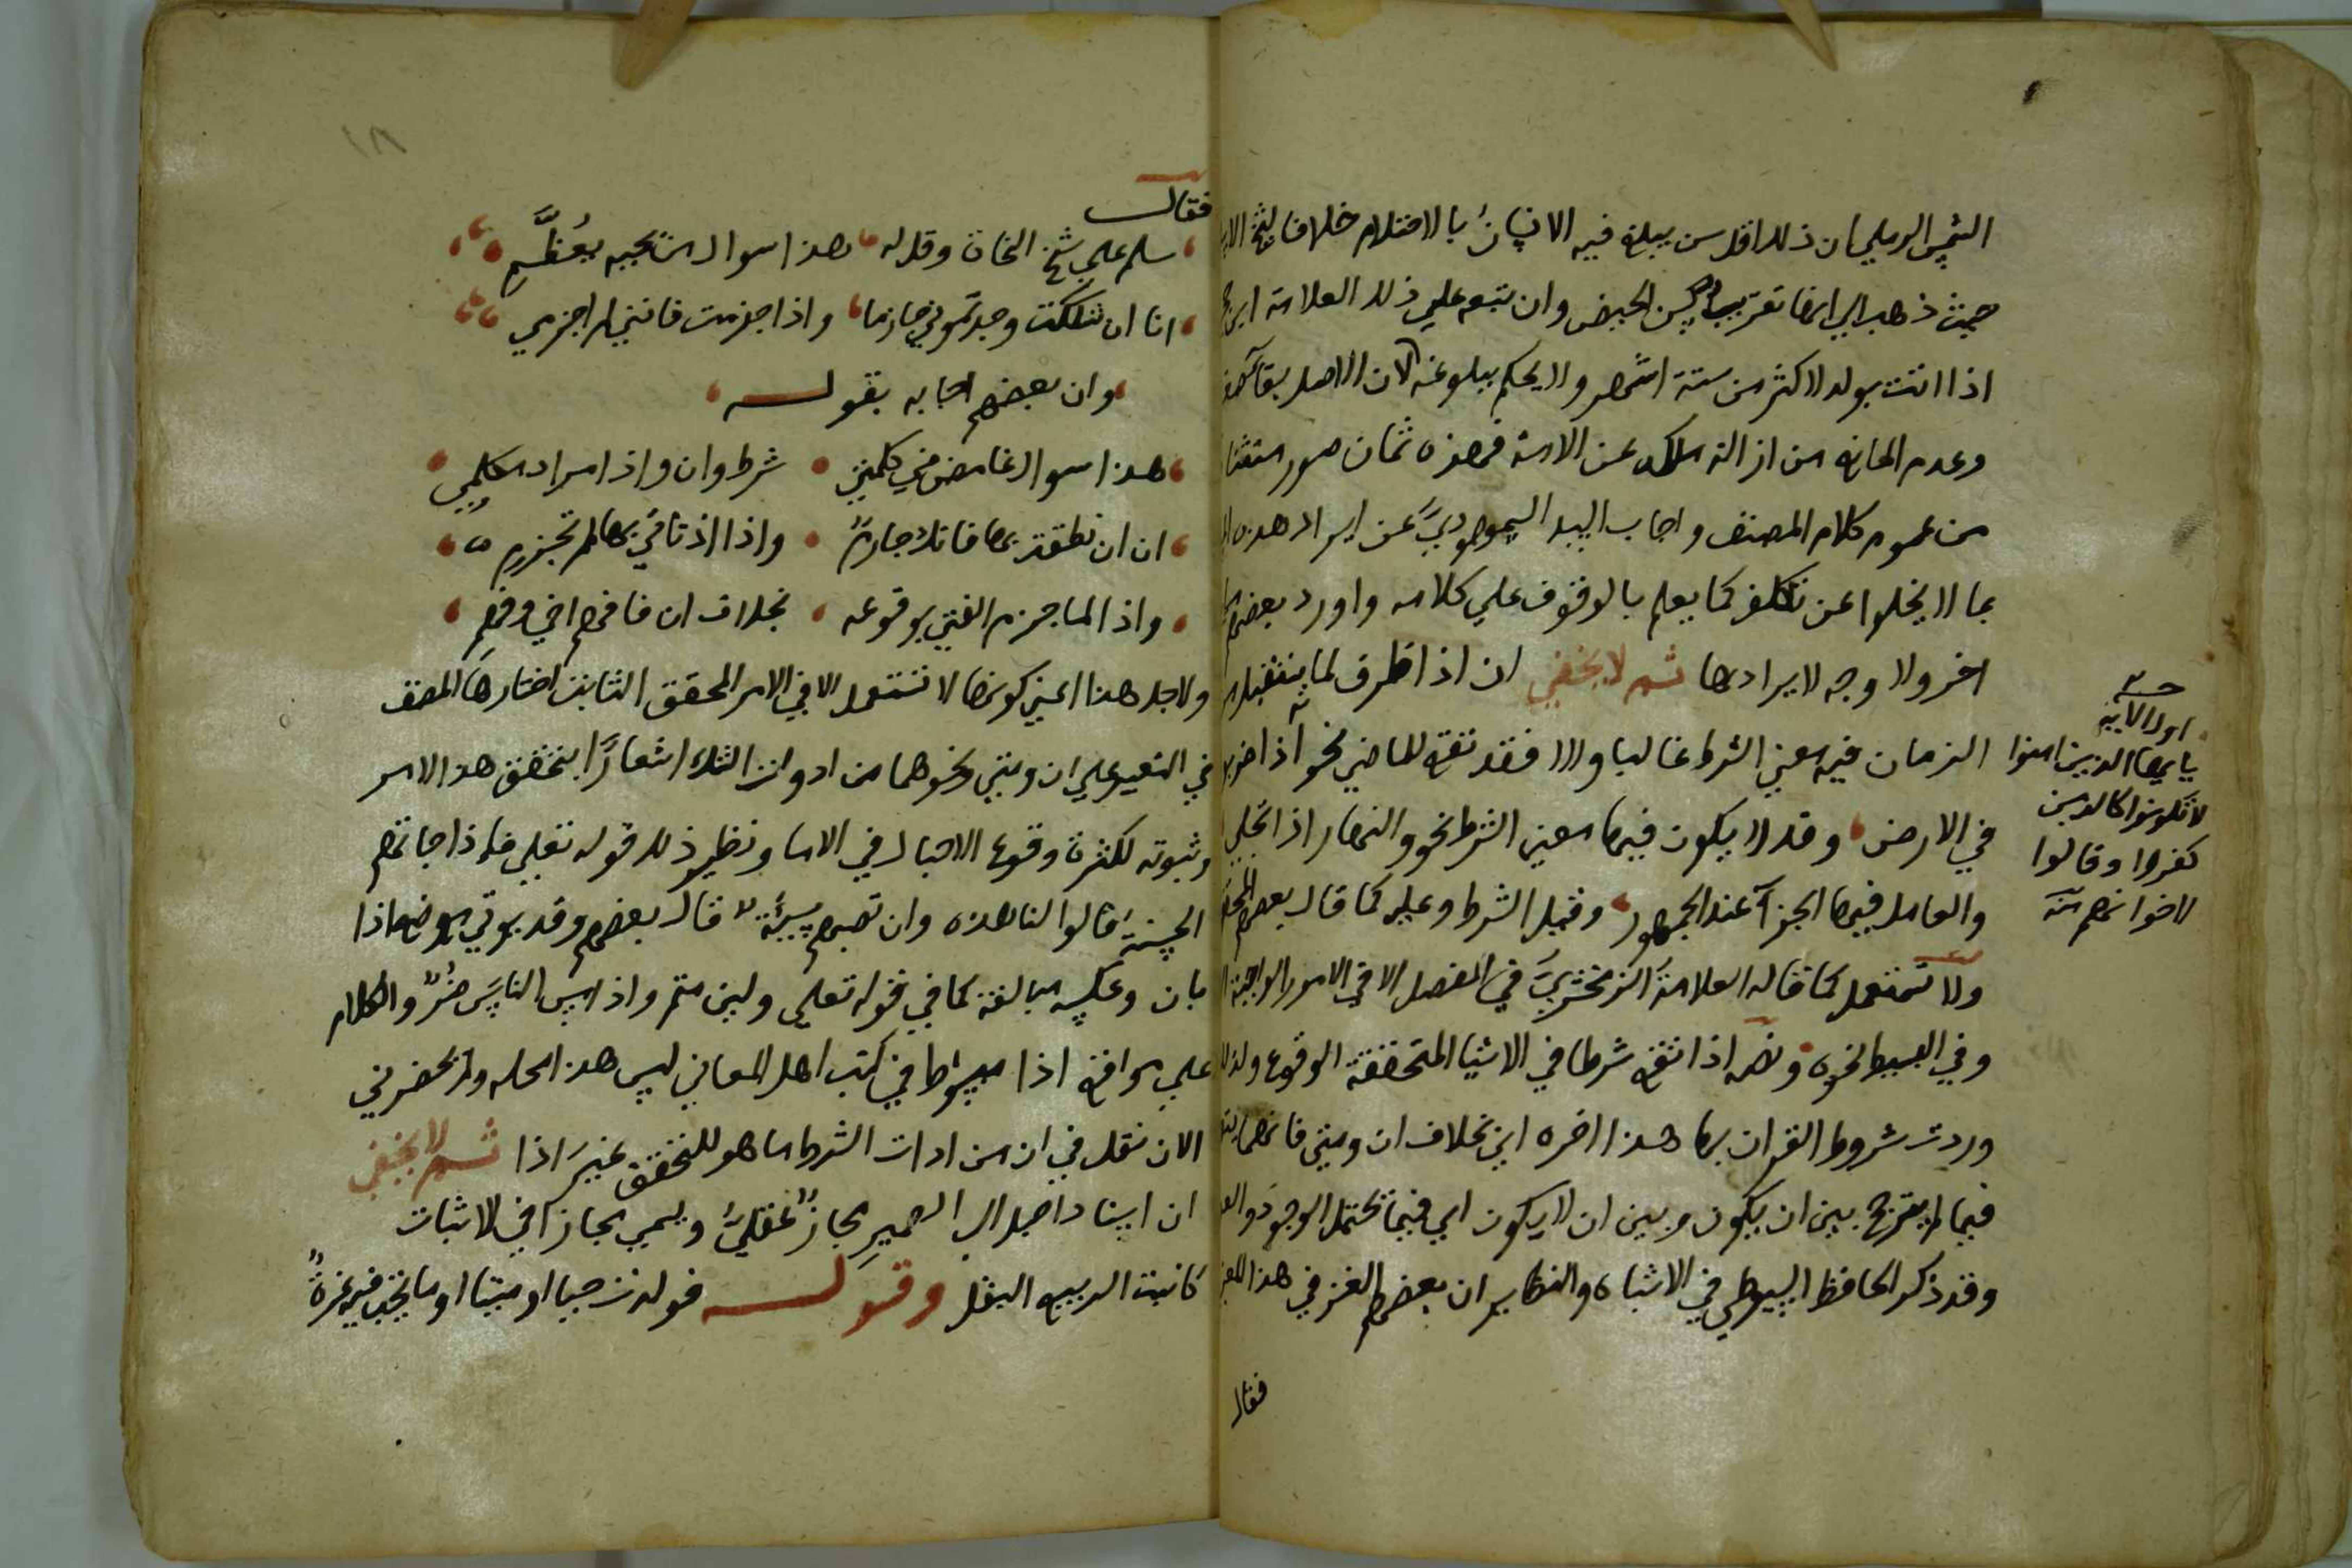 الشمس الرملي ان ذلك اقل سن يبلغ فيه الانسان بالاحتلام خلافا
حيث ذهب الي انها تقريبيه كسن الحيض وان تبعه علي ذلك العلامة ابن
اذا اتت بولد لاكثر من ستة اشهر ولا يحكم ببلوغه لان الاصل بقا
وعدم المانع من ازالة ملك عن الامة فهذه ثمان صور
من عموم كلام المصنف واجاب السيد السمهودي عن ايراد هذه
بما لا يخلوا عن تكلف كما يعلم بالوقوف علي كلامه واورد بعضهم
اخر ولا وجه لايرادها ثم لا يخفي ان اذا ظرف لما يستقبل من
الزمان فيه معني الشرط غالبا والا فقد تقع للماضي نحو اذا ضربوا
في الارض وقد لا يكون فيها معني الشرط نحو والنهار اذا تجلي
والعامل فيها الجزآ عند الجمهور وقيل الشرط وعليه كما قال بعضهم
ولا تستعمل كما قاله العلامة الزمخشري في المفصل الا في الامور الواجبة
وفي البسيط نحوه ونصه اذا تقع شرطا في الاشيا المتحققة الوقوع ولذلك
وردت شروط القران بها هذا اخره اي بخلاف ان ومتي فانهما
فيما لم يترجح بين ان يكون وبين ان لا يكون اي فيما تحتمل الوجود
وقد ذكر الحافظ السيوطي في الاشباه والنظاير ان بعضهم الغز في هذا
فقال
اول الاية
يايها الذين امنوا
لا تكونوا كالذين
كفروا وقالوا
لاخوانهم
فقال
سلم علي شيخ النحاة وقل له هذا سوال من يجبه يعظم
انا ان شككت وجدتموني جازما واذا جزمت فانني لم اجزمي
وان بعضهم اجابه بقوله
هذا سوال غامض في كلمتي شرط وان واذا مراد مكلمي
ان ان نطقت بها فانك جازم واذا اذا تاتي بها لم تجزم
واذا لما جزم الفتي بوقوعه بخلاف ان فافهم اخي وفهم
ولاجل هذا اعني كونها لا تستعمل الا في الامر المحقق الثابت اختارها المصنف
في التعبير علي ان ومتي ونحوهما من ادوات الشك اشعارا بتحقق هذا الامر
وثبوته لكثرة وقوع الاحبال في الاما ونظير ذلك قوله تعلي فاذا جاتهم
الحسنة قالوا لنا هذه وان تصبهم سيئة قال بعضهم وقد يوتي موضع اذا
بان وعكسه مبالغة كما في قوله تعلي ولين متم واذا مس الناس ضر والكلام
علي مواقع اذا مبسوط في كتب اهل المعاني ليس هذا محله ولم يحضرني
الان نقل في ان من ادات الشرط ما هو للتحقق غير اذا ثم لا يخفي
ان اسناد احبل الي الضمير مجاز عقلي ويسمي مجازا في الاثبات
كانبت الربيع البقل وقوله فولدت حيا او ميتا او ما تجب فيه غرة